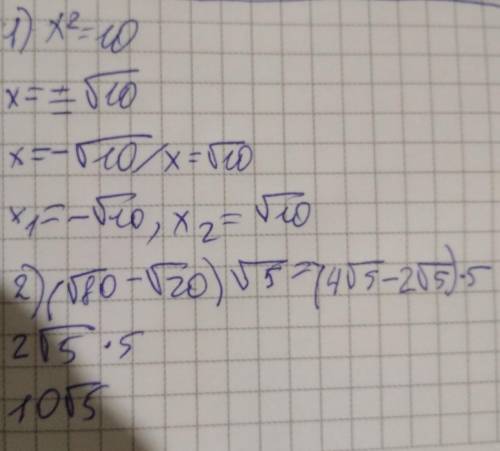 1) x²=10
x=±√10
x=-√10/x=√10
x₁=-√10, x₂=√10
2) (√80-√20)√5=(4√5-2√5)·5
2√5·5
10√5